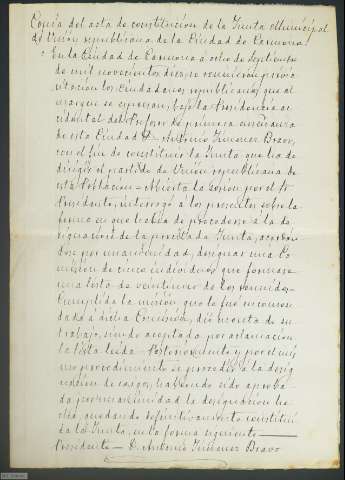 Copia del acta de constitucion de la Junta Municipal
de Union republicana de la Ciudad de Carmona.
En la Ciudad de Carmona á ocho de Septiembre
de mil novecientos dies se reunieron previa
citacion los ciudadanos republicanos que al
margen se expresan, bajo la Presidencia ac
cidental del Profesor de primera enseñanza
de esta Ciudad D. Antonio Jimenez Bravo,
con el fin de constituir la Junta que ha de
dirigir el partido de Union republicana de
esta Poblacion = Abierta la sesion por el Sr
Presidente, interrogó á los presentes sobre la
forma en que habia de procederse á la de
signacion de la precitada Junta, acordan
dose por unanimidad, designar una Co
mision de cinco individuos que formase
una lista de veintinueve de los reunidos.
Cumplida la mision que le fué encomen
dada á dicha Comision, dió cuenta de su
trabajo, siendo aceptada por aclamacion
la lista leida = Posteriormente y por el mis
mo procedimiento se procedió á la desig
nacion de cargos, habiendo sido aproba
da por unanimidad la designacion he
cha, quedando definitivamente constitui
da la Junta, en la forma siguiente
Presidente = D. Antonio Jimenez Bravo